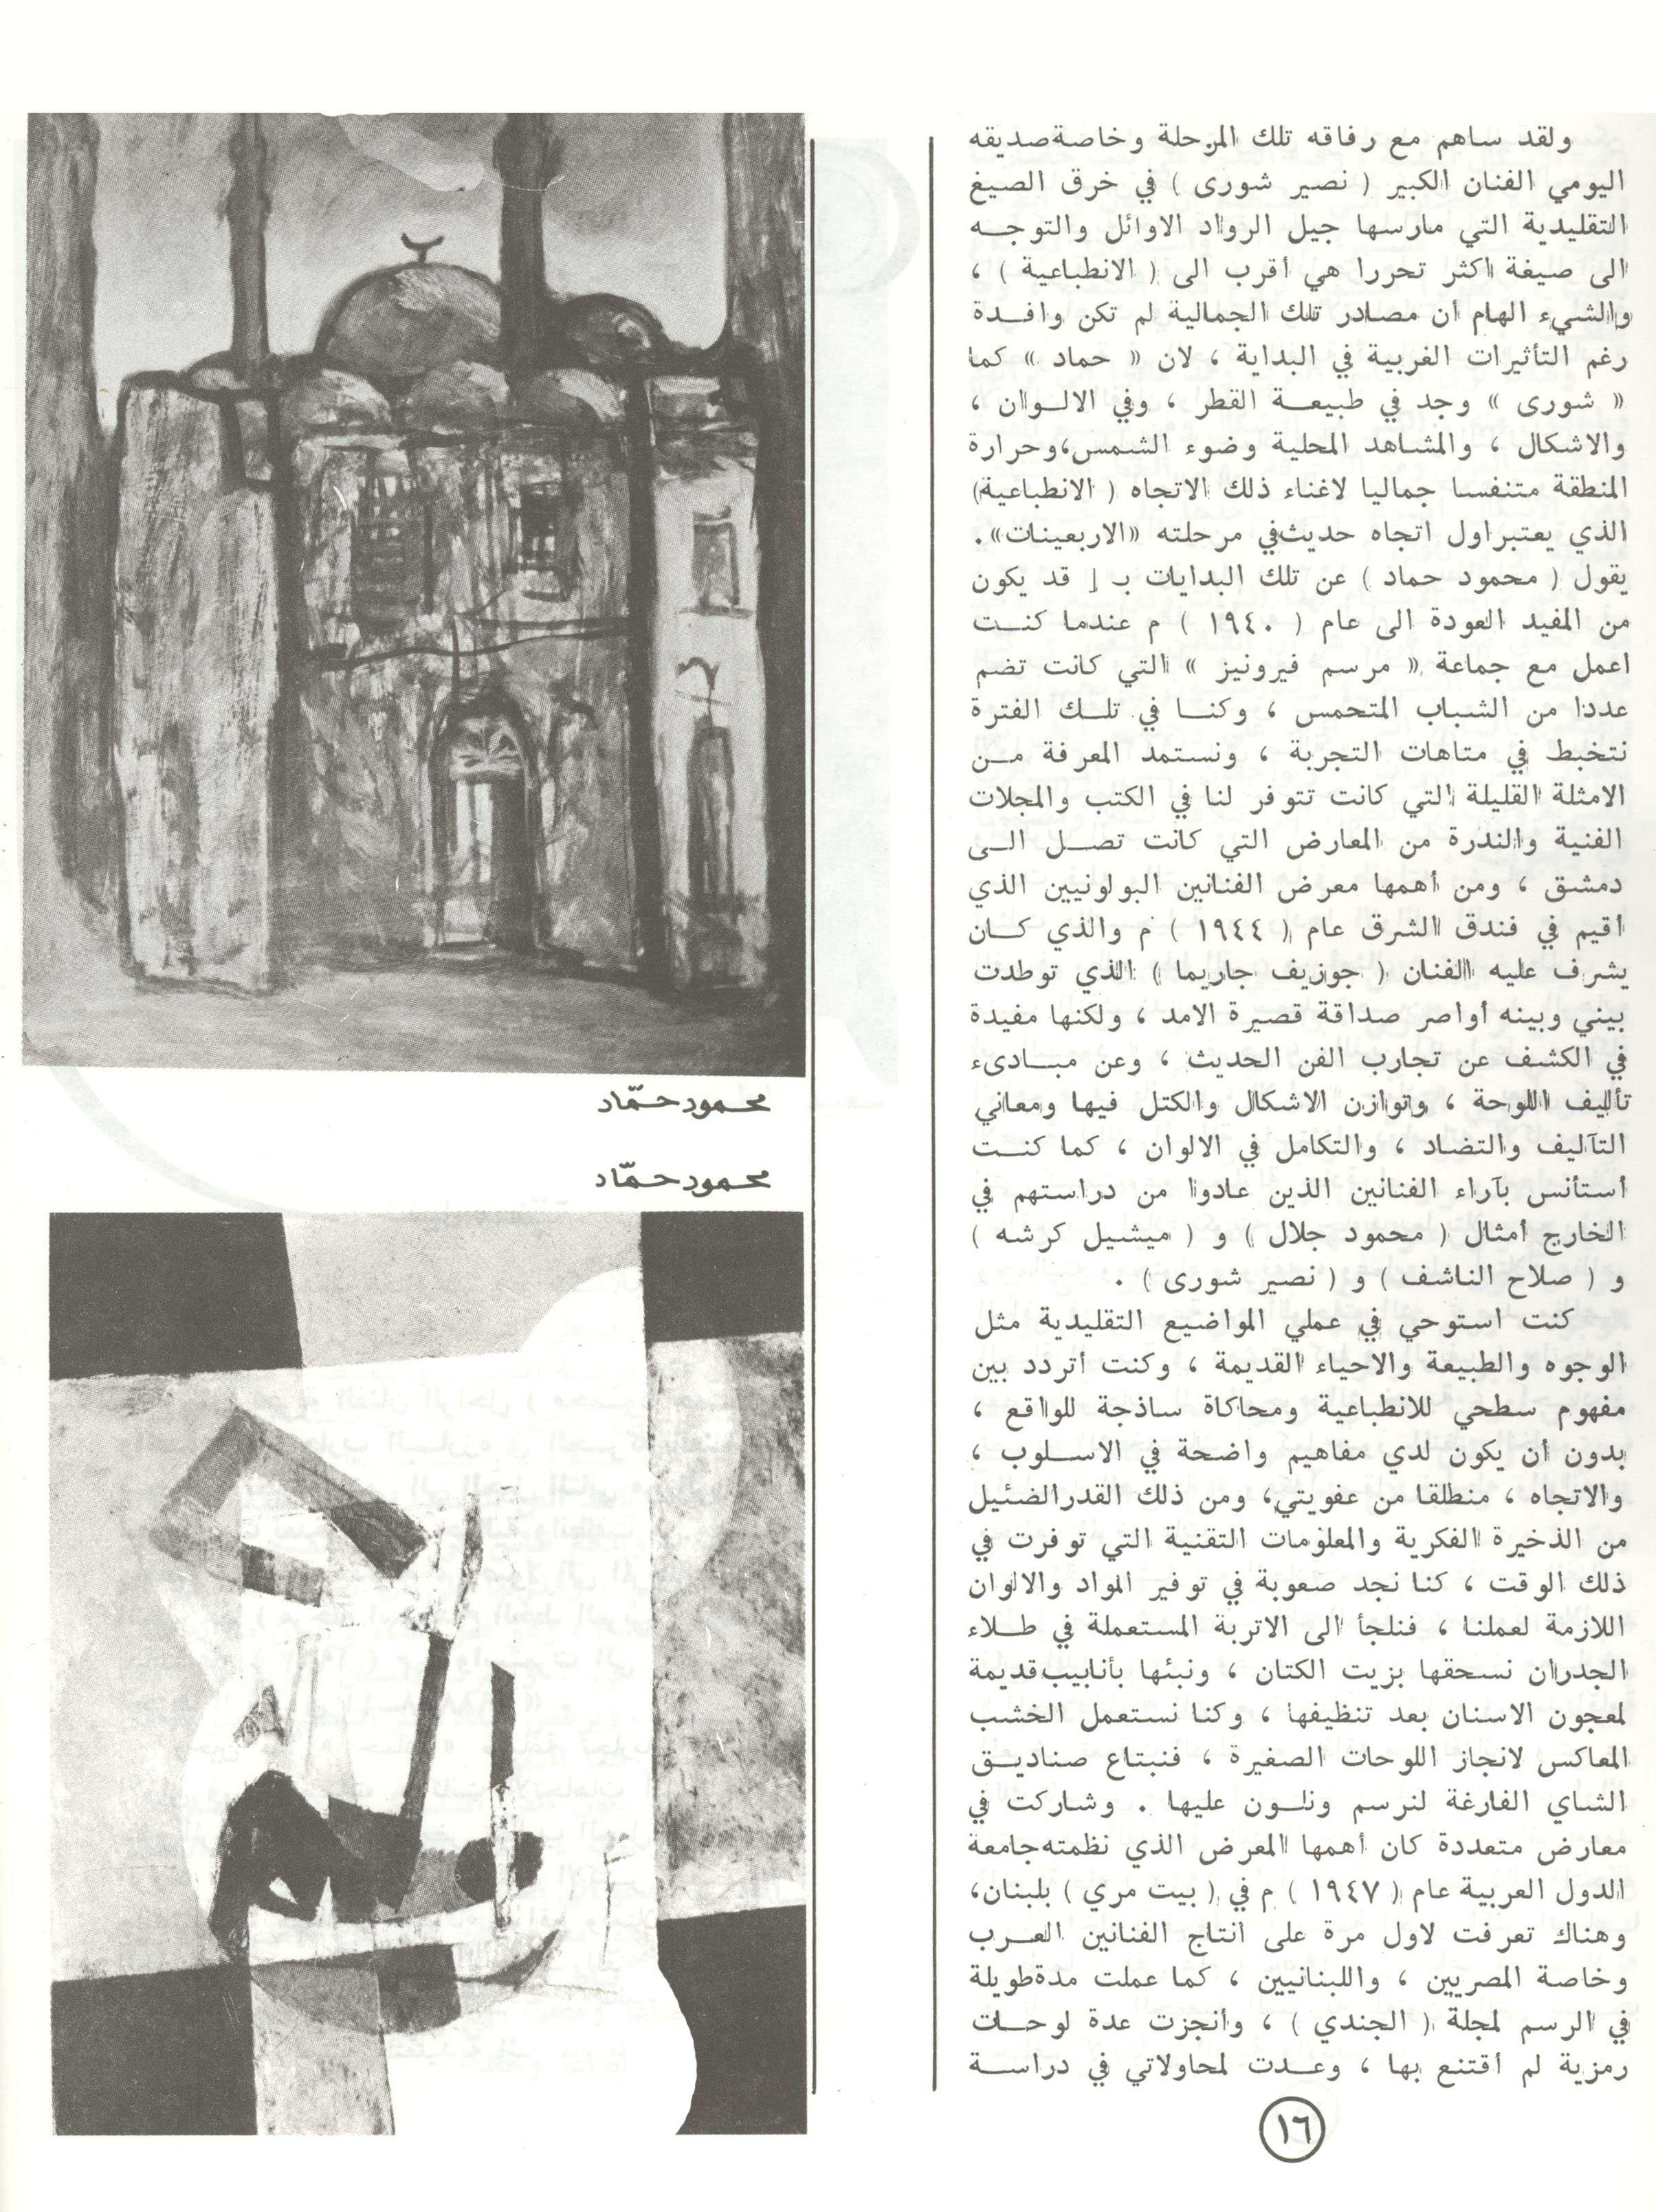 ولقد ساهم مع رفاقه تلك المرحلة وخاصة صديقه
اليومي الفنان الكبير ( نصير شورى ) في خرق الصيغ
التقليدية التي مارسها جيل الرواد الاوائل والتوجه
الى صيغة اكثر تحررا هي أقرب الى ( الانطباعية ) ،
والشيء الهام أن مصادر تلك الجمالية لم تكن وافدة
رغم التأثيرات الغربية في البداية ، لان « حماد » كما
« شورى » وجد في طبيعة القطر ، وفي الالوان ،
والاشكال ، والمشاهد المحلية وضوء الشمس، وحرارة
المنطقة متنفسا جماليا لاغناء ذلك الاتجاه ( الانطباعية)
الذي يعتبر اول اتجاه حديث في مرحلته «الاربعينات» .
يقول ( محمود حماد ) عن تلك البدايات بـ [ قد يكون
من المفيد العودة الى عام ( ١٩٤٠ ) م عندما كنت
اعمل مع جماعة « مرسم فيرونيز » التي كانت تضم
عددا من الشباب المتحمس ، وكنا في تلك الفترة
نتخبط في متاهات التجربة ، ونستمد المعرفة من
الامثلة القليلة التي كانت تتوفر لنا في الكتب والمجلات
الفنية والندرة من المعارض التي كانت تصل الى
دمشق ، ومن أهمها معرض الفنانين البولونيين الذي
أقيم في فندق الشرق عام ( ١٩٤٤ ) م والذي كان
يشرف عليه الفنان ( جوزيف جاريما ) الذي توطدت
بيني وبينه أواصر صداقة قصيرة الامد ، ولكنها مفيدة
في الكشف عن تجارب الفن الحديث ، وعن مبادىء
تأليف اللوحة ، وتوازن الاشكال والكتل فيها ومعاني
التآليف والتضاد ، والتكامل في الالوان ، كما كنت
أستأنس بآراء الفنانين الذين عادوا من دراستهم في
الخارج أمثال ( محمود جلال ) و ( ميشيل كرشه )
و ( صلاح الناشف ) و ( نصير شورى ) .
كنت استوحي في عملي المواضيع التقليدية مثل
الوجوه والطبيعة والاحياء القديمة ، وكنت أتردد بين
مفهوم سطحي للانطباعية ومحاكاة ساذجة للواقع ،
بدون أن يكون لدي مفاهيم واضحة في الاسلوب ،
والاتجاه ، منطلقا من عفويتي، ومن ذلك القدر الضئيل
من الذخيرة الفكرية والمعلومات التقنية التي توفرت في
ذلك الوقت ، كنا نجد صعوبة في توفير المواد والالوان
اللازمة لعملنا ، فنلجأ الى الاتربة المستعملة في طلاء
الجدران نسحقها بزيت الكتان ، ونبئها بأنابيب قديمة
لمعجون الاسنان بعد تنظيفها ، وكنا نستعمل الخشب
المعاكس لانجاز اللوحات الصغيرة ، فنبتاع صناديق
الشاي الفارغة لنرسم ونلون عليها . وشاركت في
معارض متعددة كان أهمها المعرض الذي نظمته جامعة
الدول العربية عام ( ١٩٤٧ ) م في ( بيت مري ) بلبنان،
وهناك تعرفت لاول مرة على انتاج الفنانين العرب
وخاصة المصريين ، واللبنانيين ، كما عملت مدة طويلة
في الرسم لمجلة ( الجندي ) ، وأنجزت عدة لوحات
رمزية لم أقتنع بها ، وعدت لمحاولاتي في دراسة
محمود حمّاد
محمود حمّاد
١٦